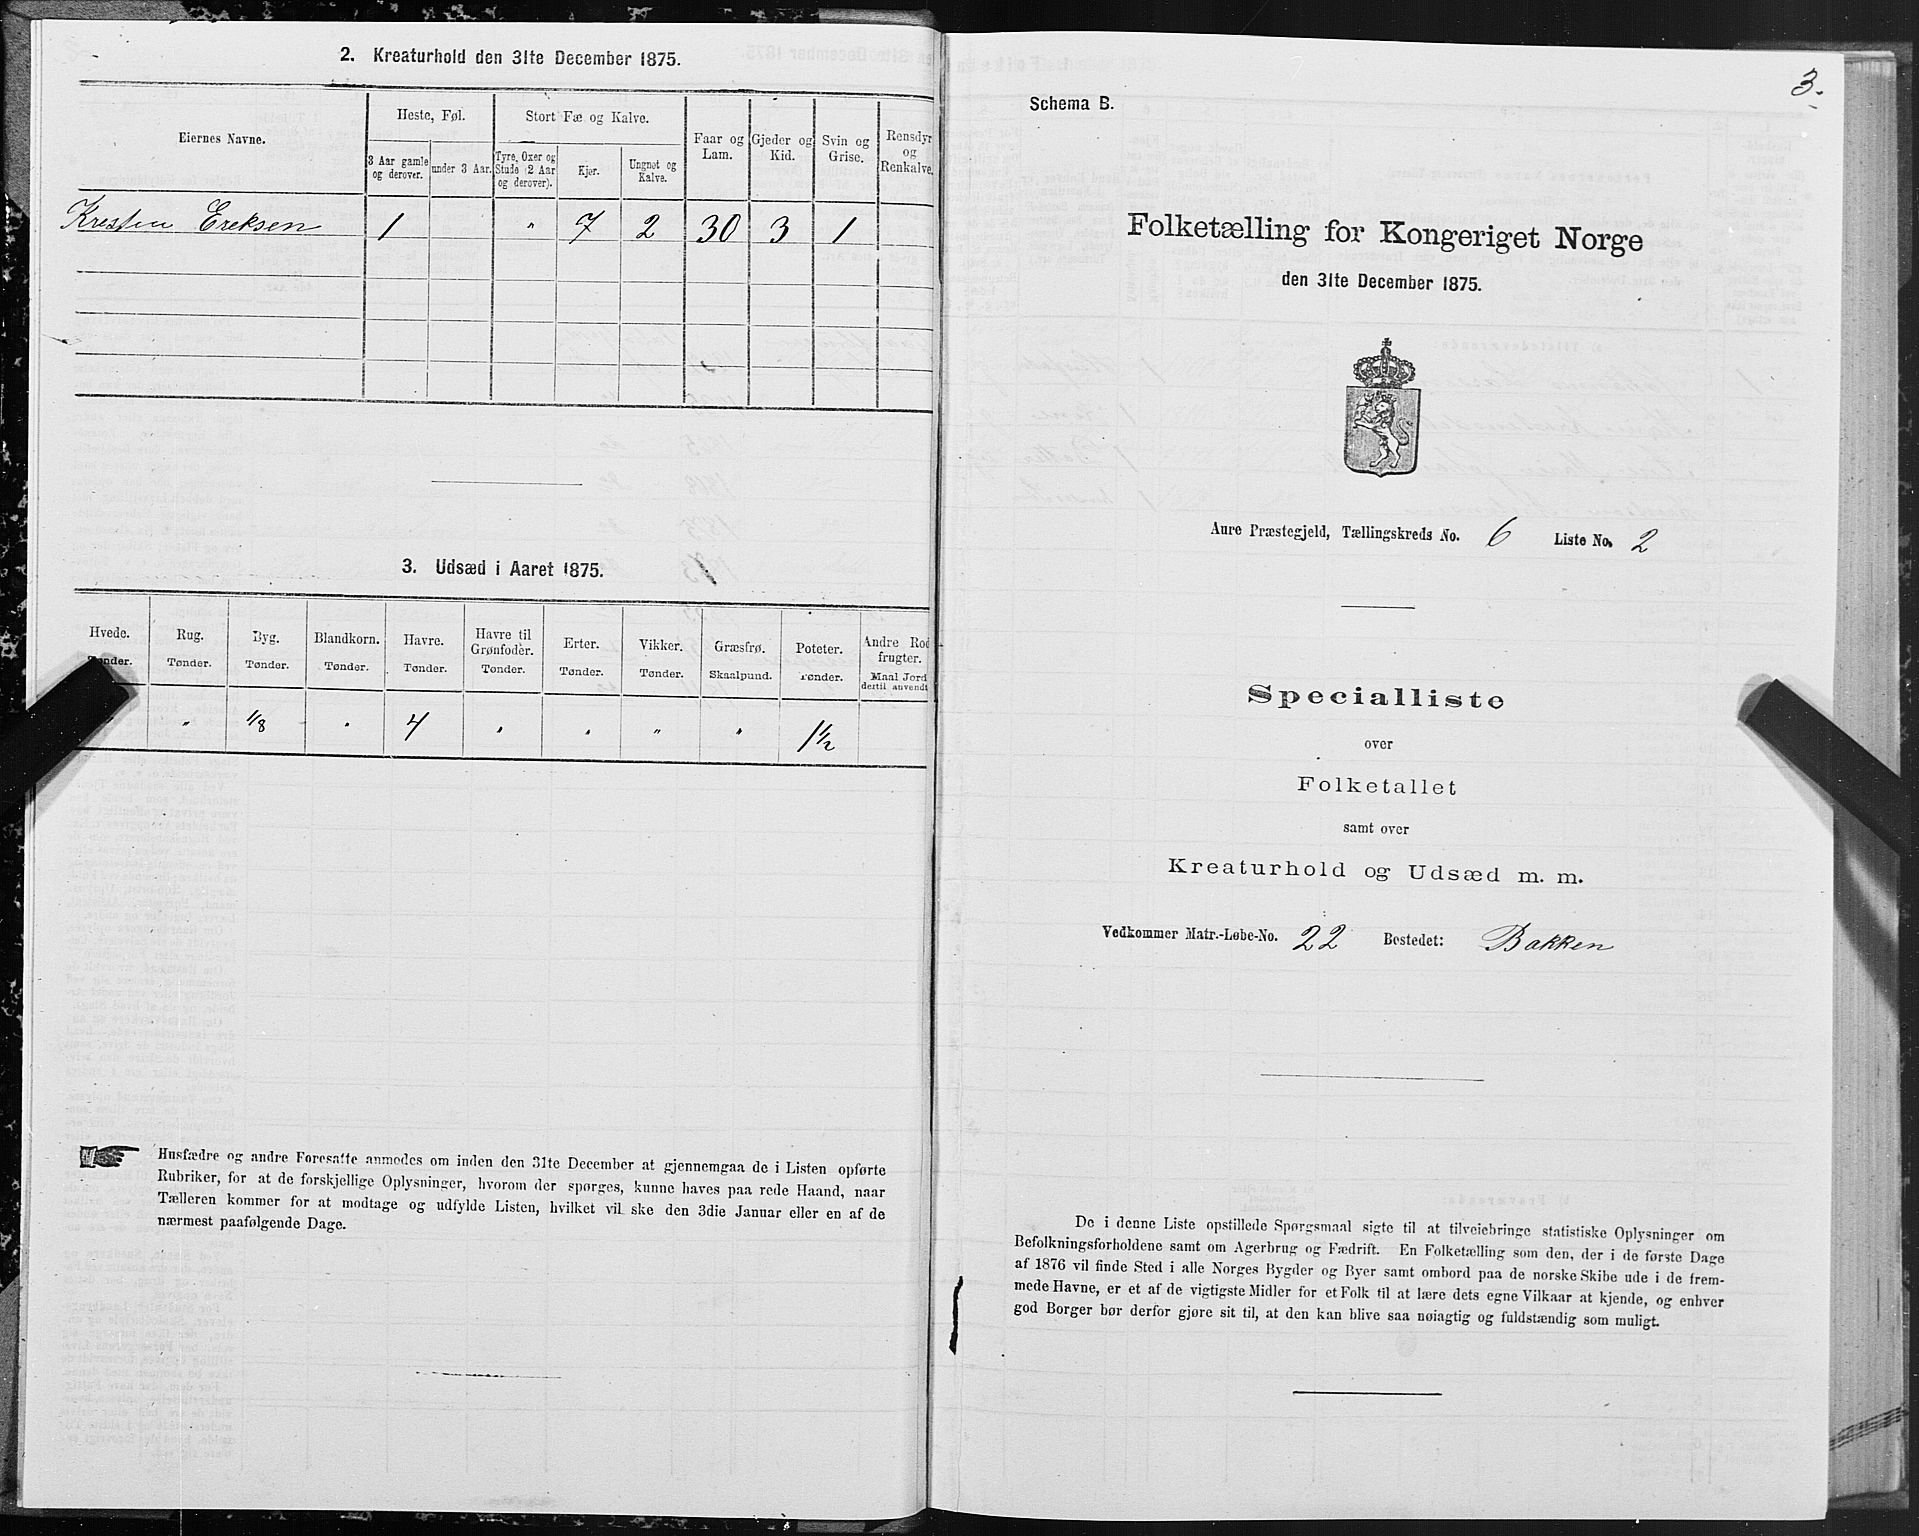 2. Kreaturhold den 31te December 1875.
Eiernes Navne.
Heste, Føl.
3 Aar gamle og derover.
under 3 Aar.
Stort Fæ og Kalve.
Tyre, Oxer og Stude (2 Aar og derover).
Kjør.
Ungnøt og Kalve.
Faar og Lam.
Gjeder og Kid.
Svin og Grise.
Rensdyr og Renkalve.
Kresten Ereksen 1 " 7 2 30 3 1
3. Udsæd i Aaret 1875.
Hvede. Rug. Byg. Blandkorn. Havre. Havre til Grønfoder. Erter. Vikker. Græsfrø. Poteter. Andre Rodfrugter.
Tønder. Tønder. Tønder. Tønder. Tønder. Tønder. Tønder. Tønder. Skaalpund. Tønder. Maal Jord dertil anvendt
" 1/8 " 4 " " " " 1 1/2
Husfædre og andre Foresatte anmodes om inden den 31te December at gjennemgaa de i Listen opførte
Rubriker, for at de forskjellige Oplysninger, hvorom der spørges, kunne haves paa rede Haand, naar
Tælleren kommer for at modtage og udfylde Listen, hvilket vil ske den 3die Januar eller en af de
nærmest paafølgende Dage.
3.
Schema B.
Folketælling for Kongeriget Norge
den 31te December 1875.
Aure Præstegjeld, Tællingskreds No. 6 Liste No. 2
Specialliste
over
Folketallet
samt over
Kreaturhold og Udsæd m. m.
Vedkommer Matr.-Løbe-No. 22 Bostedet: Bakken
De i denne Liste opstillede Spørgsmaal sigte til at tilveiebringe statistiske Oplysninger om
Befolkningsforholdene samt om Agerbrug og Fædrift. En Folketælling som den, der i de første Dage
af 1876 vil finde Sted i alle Norges Bygder og Byer samt ombord paa de norske Skibe ude i de frem-
mede Havne, er et af de vigtigste Midler for et Folk til at lære dets egne Vilkaar at kjende, og enhver
god Borger bør derfor gjøre sit til, at den kan blive saa nøiagtig og fuldstændig som muligt.